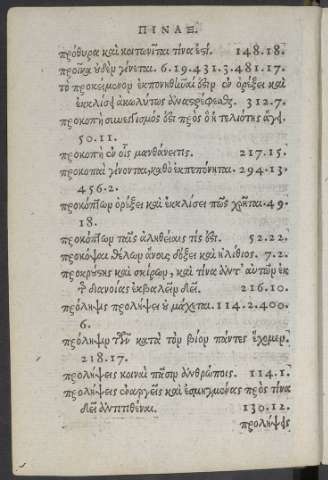 ΠΙΝΑΞ.
πρόθυρα καὶ κοιτωνῖται τίνα ἐςί. 148.18.
προῖκα οὐδὲν γίνεται. 6.19.431.3.481.17.
τὸ προκείμενον ἐκπονηθῆναί δεῖ ἐν ὀρέξει καὶ
ἐκκλίσει ἀκωλύτως ἀναςρέφεσθαι. 312.7.
προκοπὴ συνεγγισμός ἐςι πρὸς ὃ ἡ τελιότης ἄγει.
50.11.
προκοπὴ ἐν οἷς μανθάνει τις. 217.15.
προκοπαὶ γίνονται, καθὸ ἐκπεπόνηται. 294.13.
456.2.
προκόπτων ὀρέξει καὶ ἐκκλίσει πῶς χρῆται. 49.
18.
προκόπτων ταῖς ἀληθείαις τίς ἐςι. 52.22.
προκόψαι θέλων ἄνους δόξει καὶ ἠλίθιος. 7.2.
προκρούσης καὶ σκίρων, καὶ τίνα ἀντ' αὐτῶν ἐκ
τ διανοίας ἐκβαλεῖν δεῖ. 216.10.
πρόληψις προλήψει οὐ μάχεται. 114.2.400.
6.
πρόληψιν τὴν κατὰ τὸν βίον πάντες ἔχομεν.
218.17.
προλήψεις κοιναὶ πᾶσιν ἀνθρώποις. 114.1.
προλήψεις ἐναργεῖς καὶ ἐσμηγμένας πρὸς τίνα
δεῖ ἀντιτιθέναι. 130.12.
προλήψς